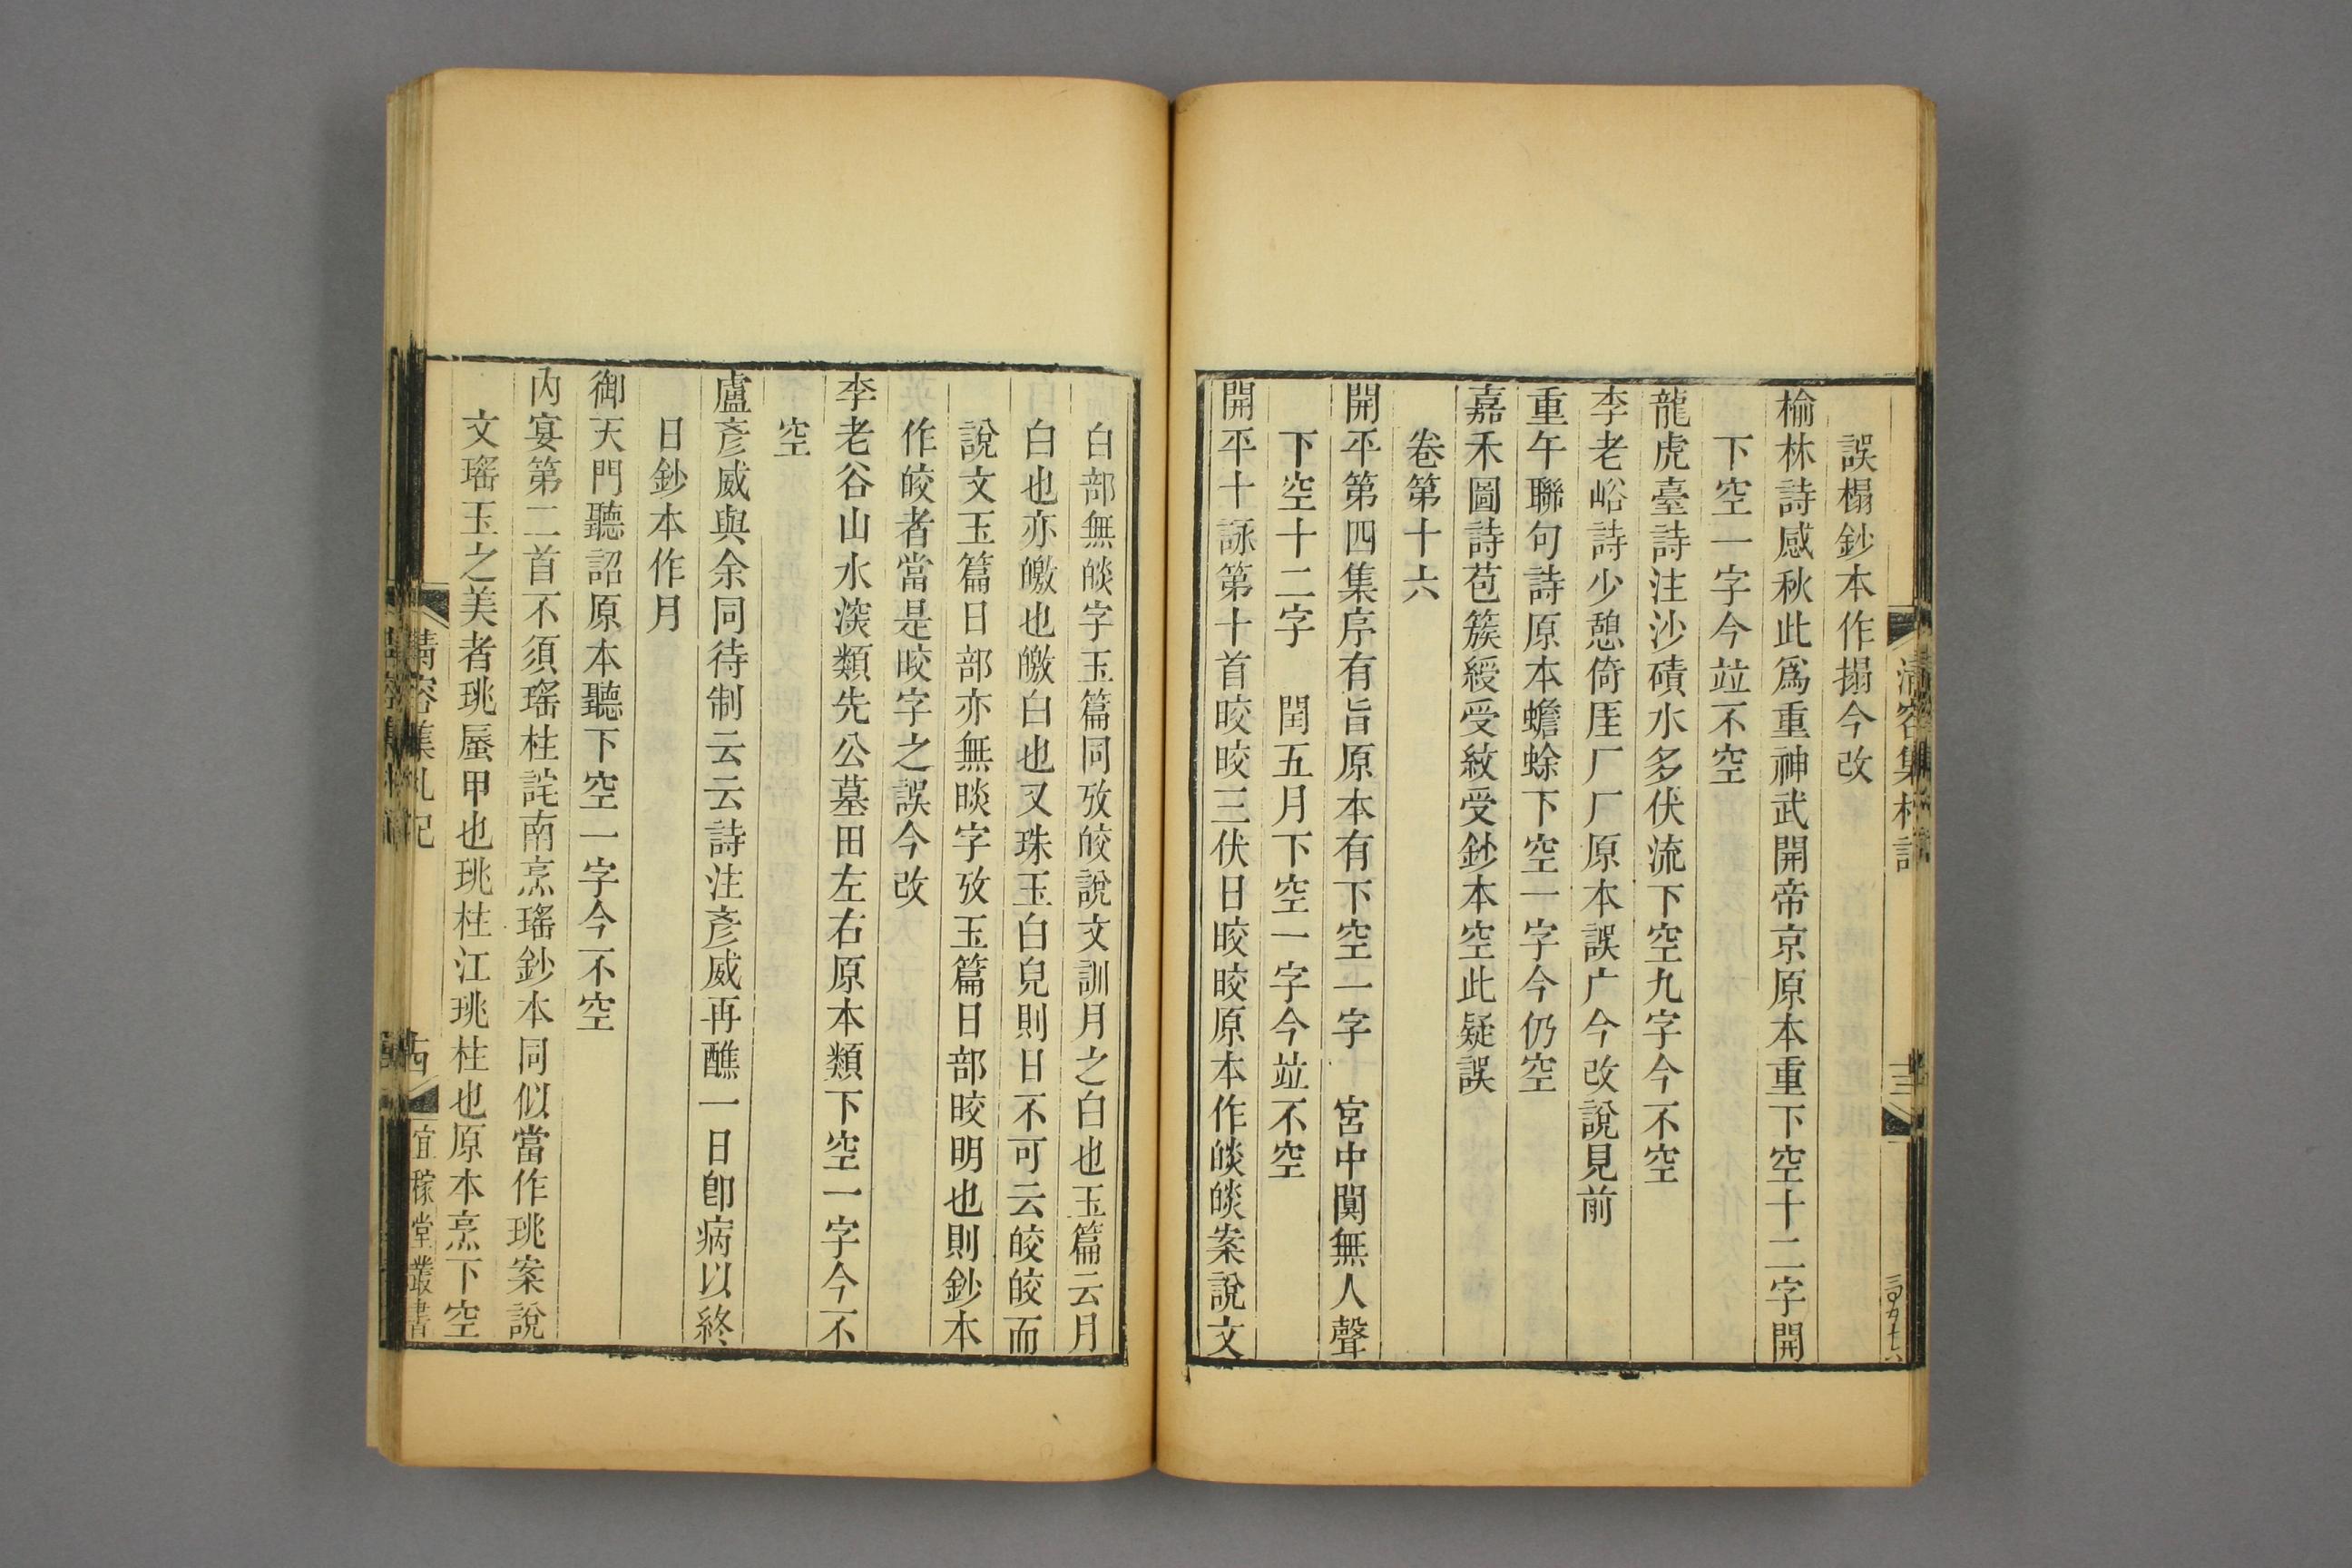 清容集札記
誤榻鈔本作搨今改
榆林詩感秋此爲重神武開帝京原本重下空十二字開
下空一字今竝不空
龍虎臺詩注沙磧水多伏流下空九字今不空
李老峪詩少憩倚厓厂厂原本誤广今改說見前
重午聯句詩原本蟾蜍下空一字今仍空
嘉禾圖詩苞簇綬受紋受鈔本空此疑誤
卷第十六
開平第四集序有旨原本有下空一字　宮中閴無人聲
下空十二字　閏五月下空一字今竝不空
開平十詠第十首晈晈三伏日晈晈原本作皢皢案說文
白部無皢字玉篇同攷皎說文訓月之白也玉篇云月
白也亦皦也皦白也又珠玉白皃則日不可云皎皎而
說文玉篇日部亦無晱字攷玉篇日部晈明也則鈔本
作皎者當是晈字之誤今改
李老谷山水滐類先公墓田左右原本類下空一字今不
空
盧彥威與余同待制云云詩注彥威再醮一日卽病以終
日鈔本作月
御天門聽詔原本聽下空一字今不空
內宴第二首不須瑤柱詫南烹瑤鈔本同似當作珧案說
文瑤玉之美者珧蜃甲也珧柱江珧柱也原本烹下空
清容集札記
宜稼堂叢書